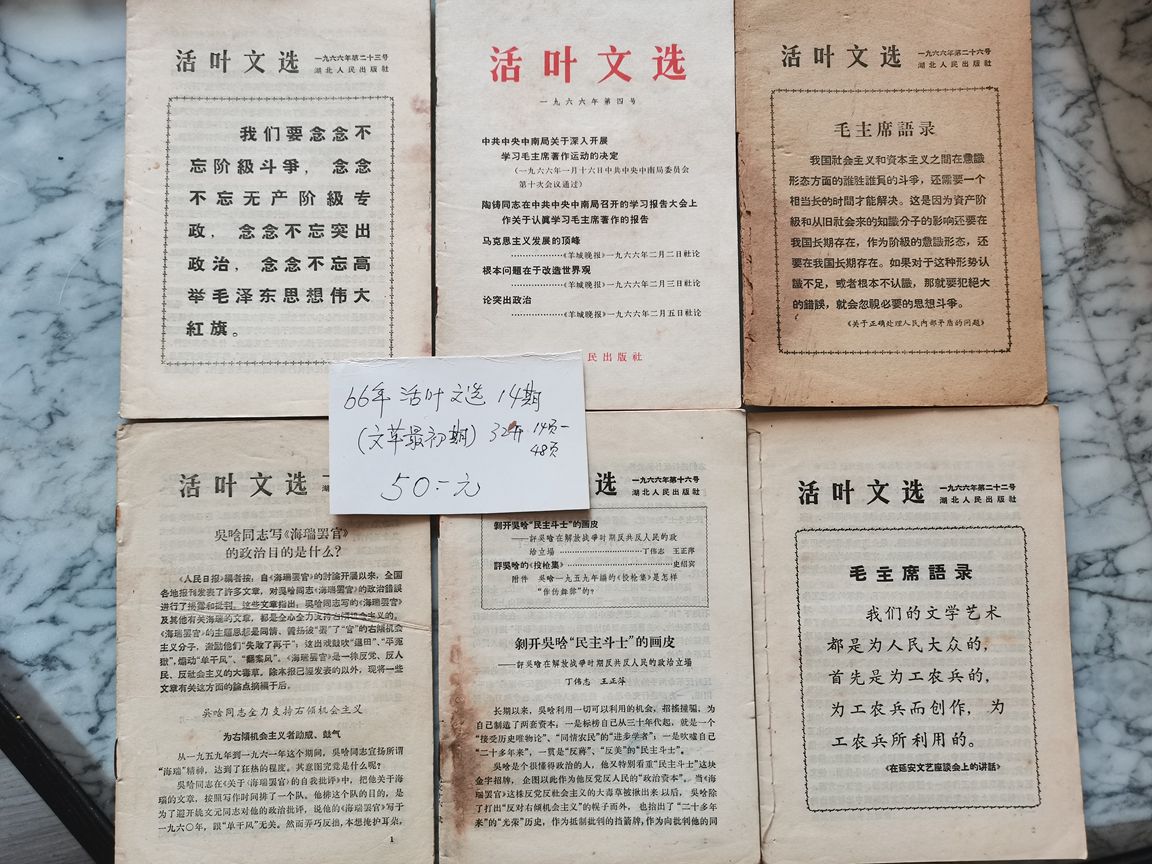 活叶文选
一九六六年第二十三号
湖北人民出版社
我们要念念不
忘阶級斗爭，念念
不忘无产阶級专
政，念念不忘突出
政治，念念不忘高
举毛泽东思想伟大
紅旗。
活叶文选
一九六六年第四号
中共中央中南局关于深入开展
学习毛主席著作运动的决定
（一九六六年一月十六日中共中央中南局委员会
第十次会议通过）
陶铸同志在中共中央中南局召开的学习报告大会上
作关于认眞学习毛主席著作的报告
马克思主义发展的顶峰
……………《羊城晚报》一九六六年二月二日社论
根本问题在于改造世界观
……………《羊城晚报》一九六六年二月三日社论
论突出政治
……………《羊城晚报》一九六六年二月五日社论
民出版社
活叶文选
一九六六年第二十六号
湖北人民出版社
毛主席語录
我国社会主义和資本主义之間在意識
形态方面的誰胜誰負的斗爭，还需要一个
相当长的时間才能解决。这是因为資产阶
級和从旧社会来的知識分子的影响还要在
我国长期存在，作为阶級的意識形态，还
要在我国长期存在。如果对于这种形势认
識不足，或者根本不认識，那就要犯絕大
的錯誤，就会忽視必要的思想斗爭。
《关于正确处理人民內部矛盾的問題》
66年 活叶文选 14期
（文革最初期） 32开 14页-
48页
50.-元
活叶文选
湖
吳晗同志写《海瑞罢官》
的政治目的是什么？
《人民日报》編者按：自《海瑞罢官》的討論开展以来，全国
各地报刊发表了許多文章，对吳晗同志《海瑞罢官》的政治錯誤
进行了揭露和批判。这些文章指出，吳晗同志写的《海瑞罢官》
及其他有关海瑞的文章，都是全心全力支持右傾机会主义的。
《海瑞罢官》的主題思想是同情、贊扬被“罢”了“官”的右傾机会
主义分子，激励他們“失敗了再干”；这出戏鼓吹“退田”、“平冤
獄”，煽动“单干风”、“翻案风”。《海瑞罢官》是一株反党、反人
民、反社会主义的大毒草。除本报已經发表的以外，现将一些
文章有关这方面的論点摘編于后。
吳晗同志全力支持右傾机会主义
为右傾机会主义者助威、鼓气
从一九五九年到一九六一年这个期間，吳晗同志宣扬所謂
“海瑞”精神，达到了狂热的程度。其意图究竟是什么呢？
吳晗同志在《关于〈海瑞罢官〉的自我批評》中，把他关于海
瑞的文章，按照写作时間排了一个队。他排这个队的目的，是
为了避开姚文元同志对他的政治批評，說他的《海瑞罢官》写于
一九六〇年，跟“单干风”无关。然而弄巧反拙，本想掩护耳朵，
1
选
一九六六年第十六号
湖北人民出版社
剝开吳晗“民主斗士”的画皮
——評吳晗在解放战爭时期反共反人民的政
治立場……………丁伟志 王正萍
評吳晗的《投枪集》……………史紹宾
附件 吳晗一九五九年編的《投枪集》是怎样
“作伪舞弊”的？
剝开吳晗“民主斗士”的画皮
——評吳晗在解放战爭时期反共反人民的政治立場
丁伟志 王正萍
长期以来，吳晗利用一切可以利用的机会，招搖撞騙，为
自己制造了两套資本：一是标榜自己从三十年代起，就是一个
“接受历史唯物論”、“同情农民”的“进步学者”；一是吹嘘自己
“二十多年来”，一貫是“反蔣”、“反美”的“民主斗士”。
吳晗是个很懂得政治的人，他又特別看重“民主斗士”这块
金字招牌，企图以此作为他反党反人民的“政治資本”。当《海
瑞罢官》这株反党反社会主义的大毒草被揪出来以后，吳晗除
了打出“反对右傾机会主义”的幌子而外，也抬出了“二十多年
来”的“光荣”历史，作为抵制批判的挡箭牌，作为向批判他的同
活叶文选
一九六六年第二十二号
湖北人民出版社
毛主席語录
我们的文学艺术
都是为人民大众的，
首先是为工农兵的，
为工农兵而创作，为
工农兵所利用的。
《在延安文艺座談会上的讲話》